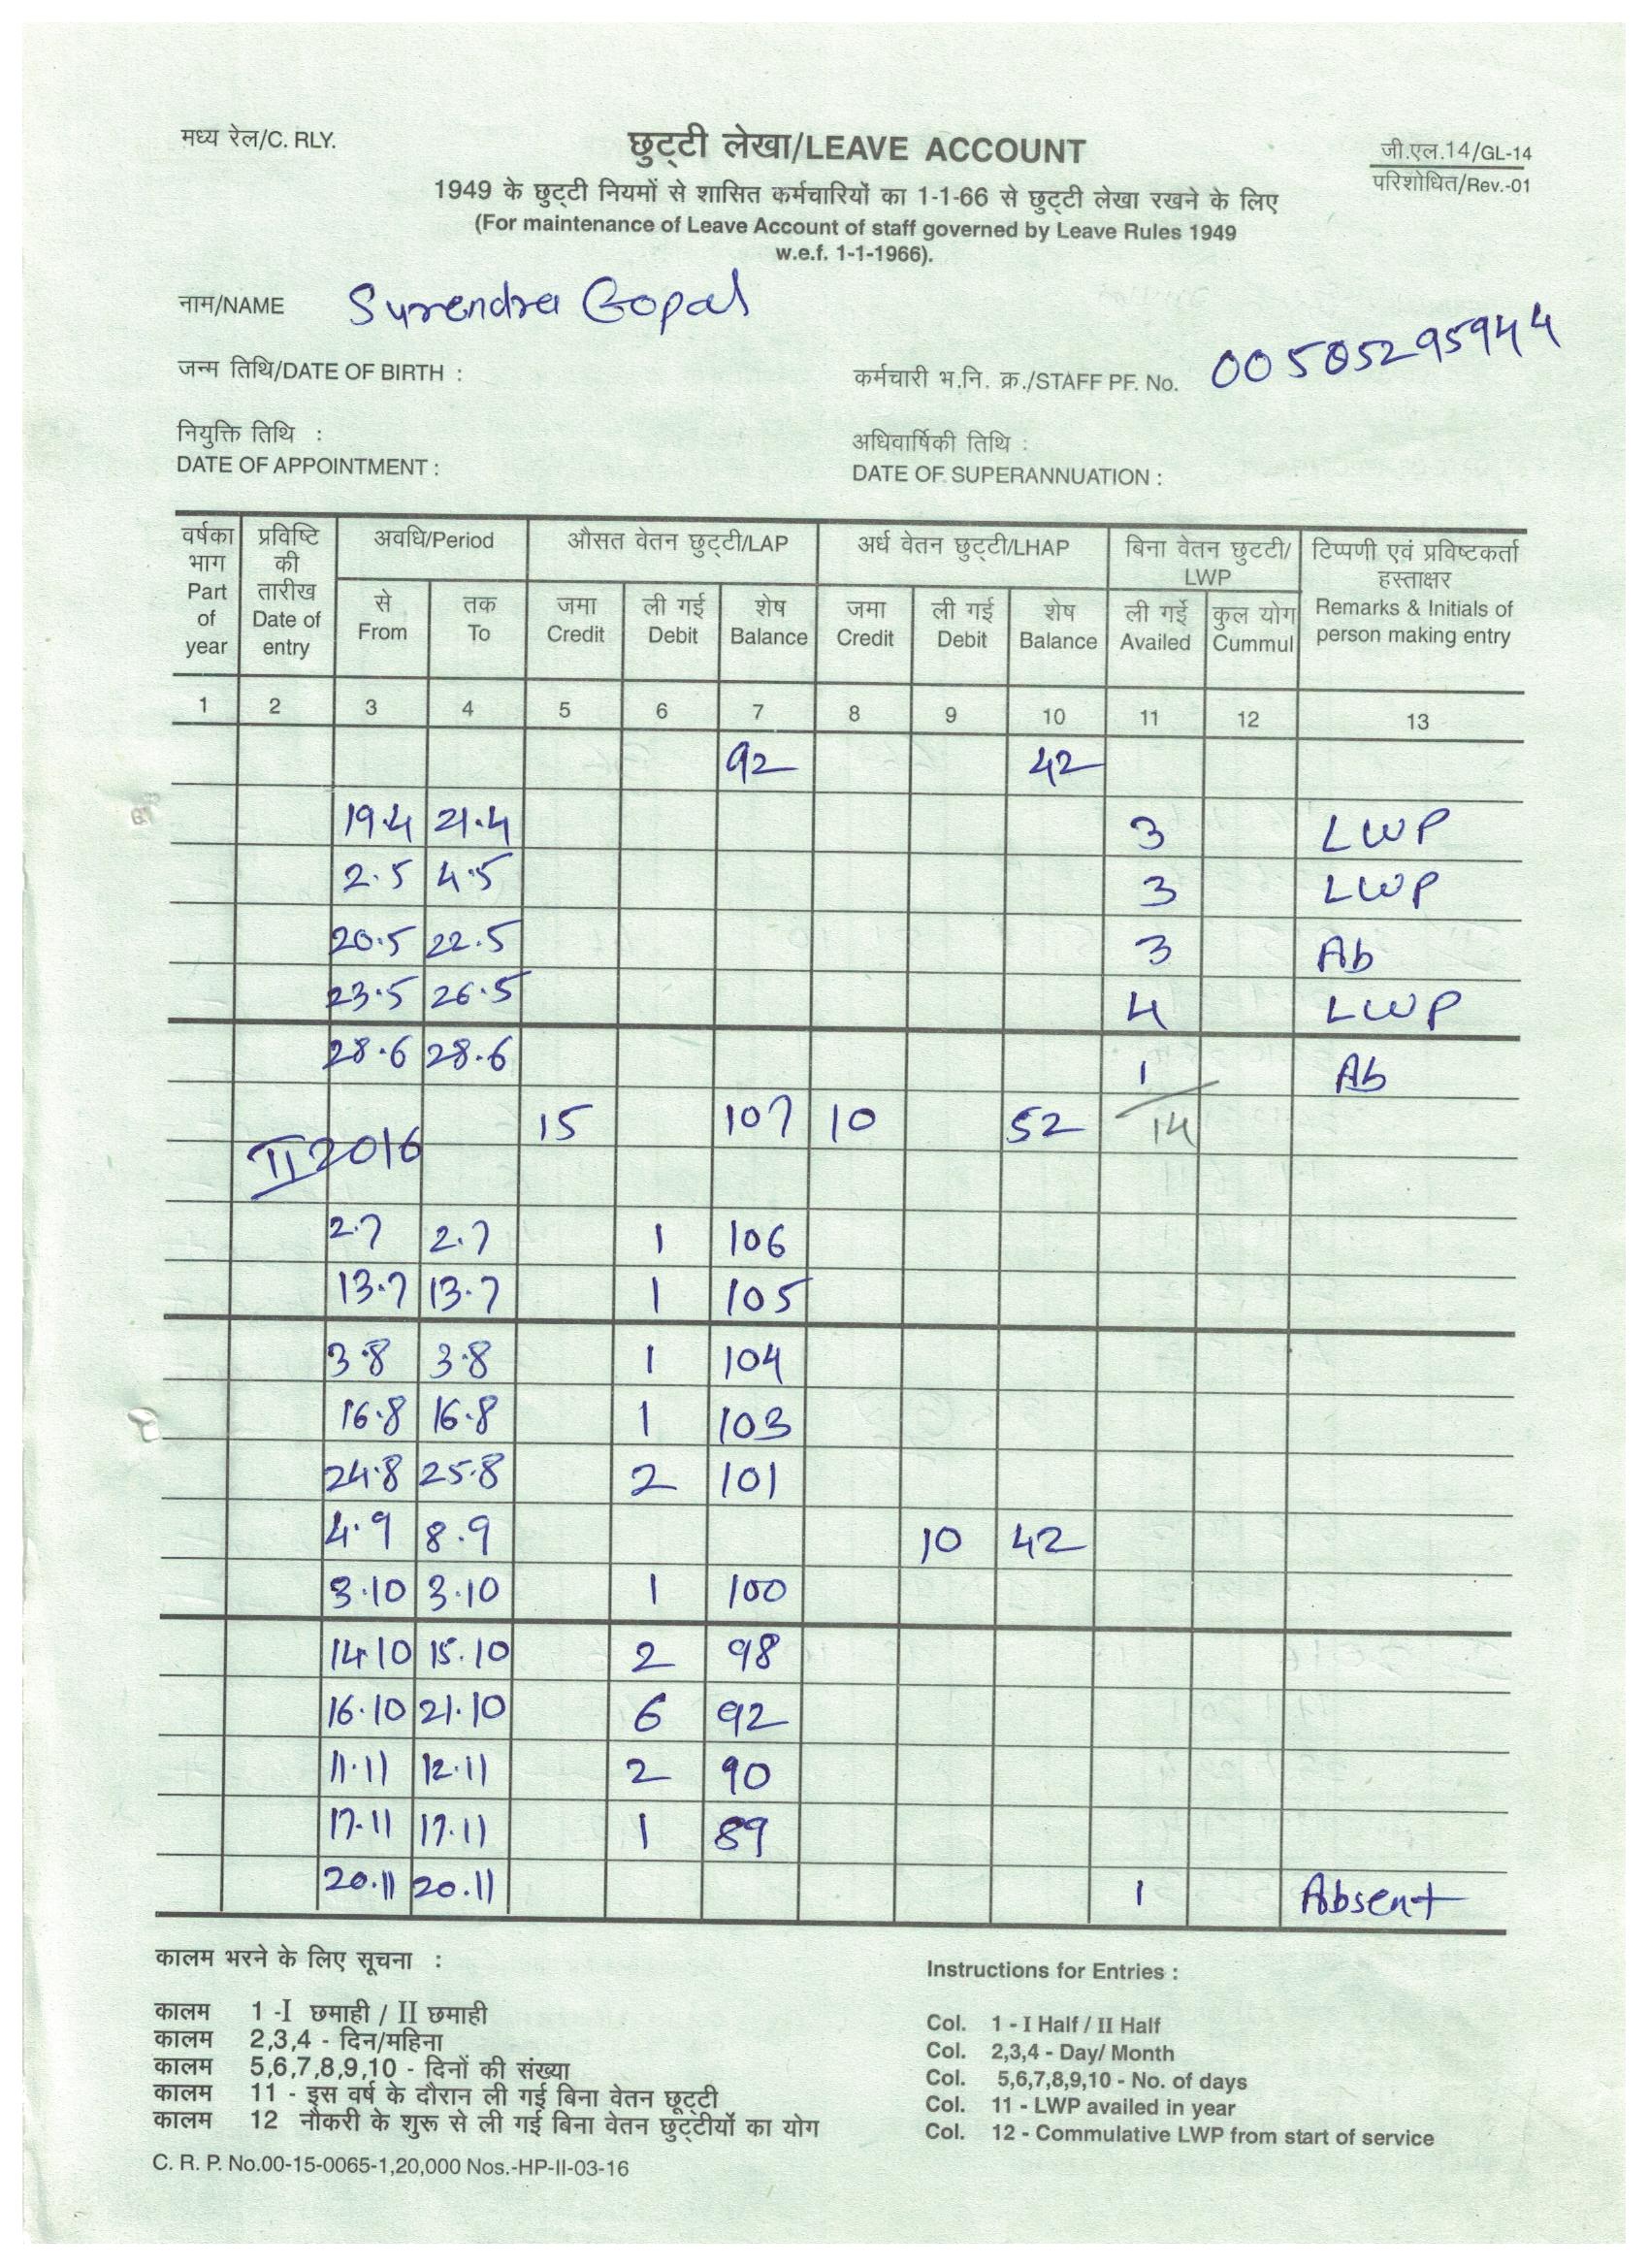 मध्य रेल/C. RLY.
छुट्टी लेखा/LEAVE ACCOUNT
जी.एल.14/GL-14
परिशोधित/Rev.-01
1949 के छुट्टी नियमों से शासित कर्मचारियों का 1-1-66 से छुट्टी लेखा रखने के लिए
(For maintenance of Leave Account of staff governed by Leave Rules 1949
w.e.f. 1-1-1966).
नाम/NAME Surendra Gopal
जन्म तिथि/DATE OF BIRTH :
कर्मचारी भ.नि. क्र./STAFF PF. No. 00505295944
नियुक्ति तिथि :
DATE OF APPOINTMENT :
अधिवार्षिकी तिथि :
DATE OF SUPERANNUATION :
वर्षका भाग Part of year
प्रविष्टि की तारीख Date of entry
अवधि/Period
औसत वेतन छुट्टी/LAP
अर्ध वेतन छुट्टी/LHAP
बिना वेतन छुटटी/ LWP
टिप्पणी एवं प्रविष्टकर्ता हस्ताक्षर Remarks & Initials of person making entry
से From
तक To
जमा Credit
ली गई Debit
शेष Balance
जमा Credit
ली गई Debit
शेष Balance
ली गई Availed
कुल योग Cummul
1 2 3 4 5 6 7 8 9 10 11 12 13
92 42
19.4 21.4 3 LWP
2.5 4.5 3 LWP
20.5 22.5 3 Ab
23.5 26.5 4 LWP
28.6 28.6 1 Ab
15 107 10 52 14
II 2016
2.7 2.7 1 106
13.7 13.7 1 105
3.8 3.8 1 104
16.8 16.8 1 103
24.8 25.8 2 101
4.9 8.9 10 42
3.10 3.10 1 100
14.10 15.10 2 98
16.10 21.10 6 92
11.11 12.11 2 90
17.11 17.11 1 89
20.11 20.11 1 Absent
कालम भरने के लिए सूचना :
कालम 1 -I छमाही / II छमाही
कालम 2,3,4 - दिन/महिना
कालम 5,6,7,8,9,10 - दिनों की संख्या
कालम 11 - इस वर्ष के दौरान ली गई बिना वेतन छूट्टी
कालम 12 नौकरी के शुरू से ली गई बिना वेतन छुट्टीयों का योग
Instructions for Entries :
Col. 1 - I Half / II Half
Col. 2,3,4 - Day/ Month
Col. 5,6,7,8,9,10 - No. of days
Col. 11 - LWP availed in year
Col. 12 - Commulative LWP from start of service
C. R. P. No.00-15-0065-1,20,000 Nos.-HP-II-03-16